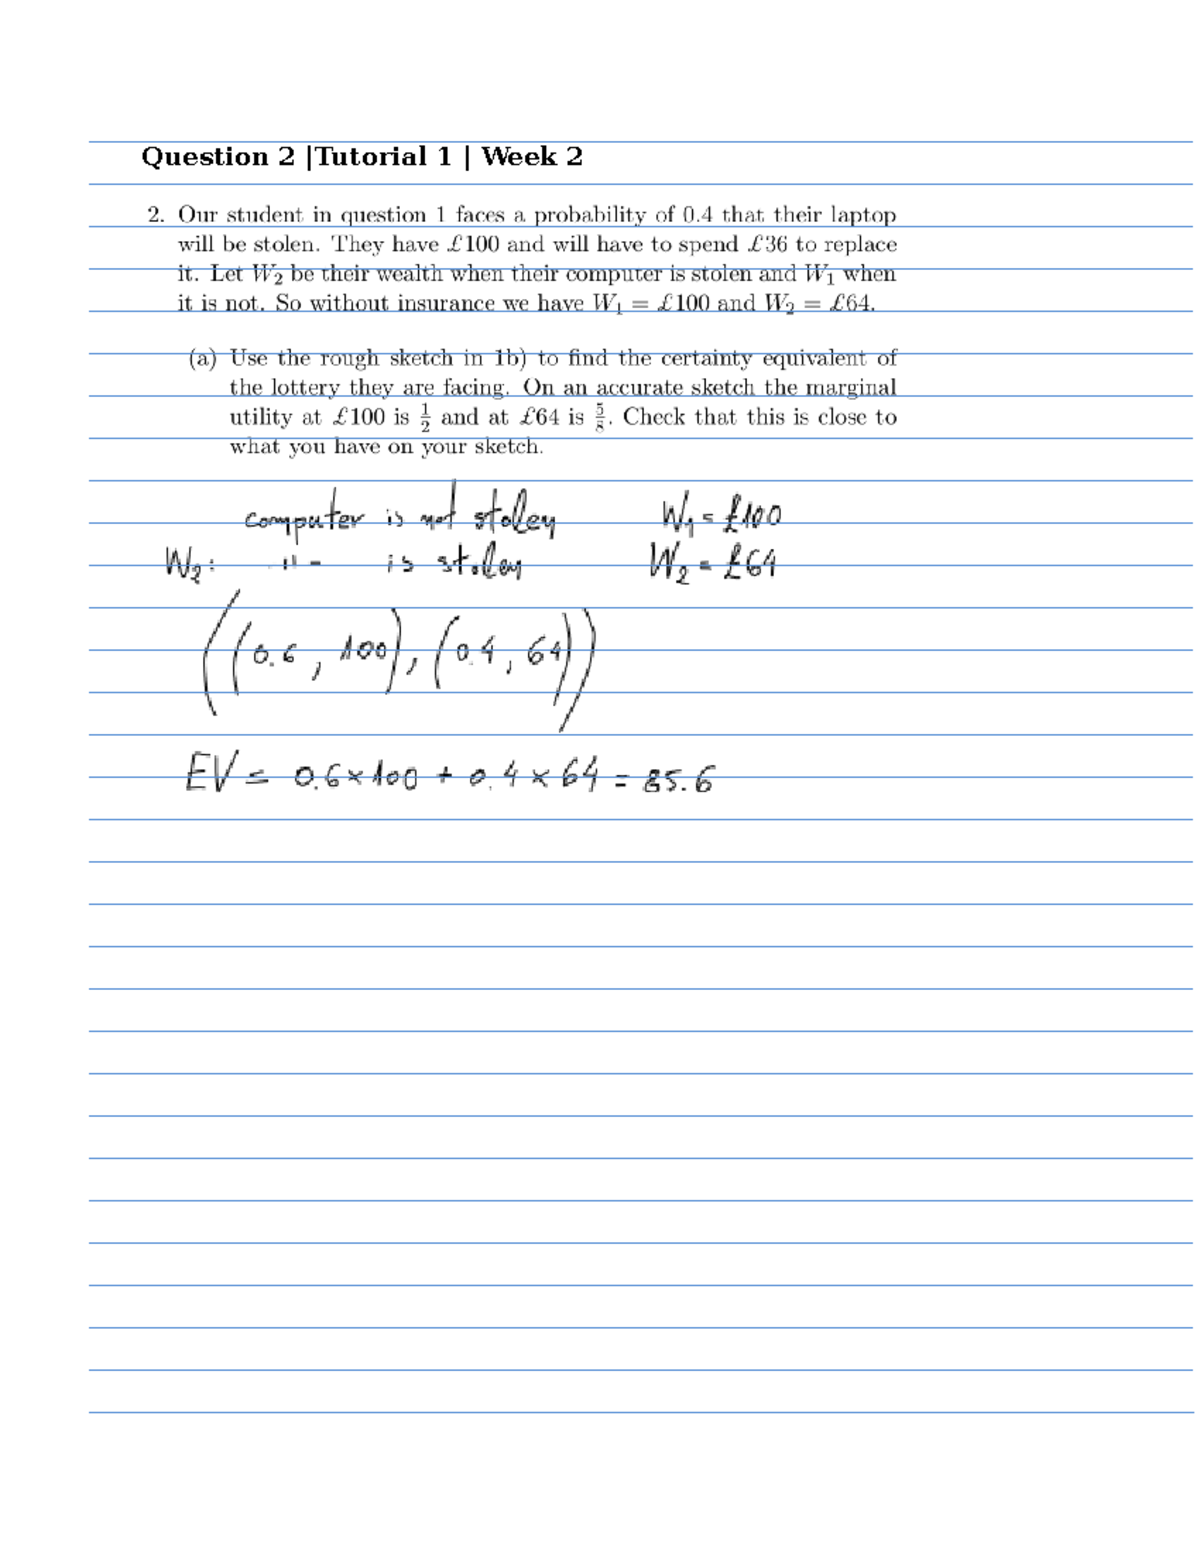 Question 2 |Tutorial 1 | Week 2
2. Our student in question 1 faces a probability of 0.4 that their laptop
will be stolen. They have £100 and will have to spend £36 to replace
it. Let W₂ be their wealth when their computer is stolen and W₁ when
it is not. So without insurance we have W₁ = £100 and W₂ = £64.
(a) Use the rough sketch in 1b) to find the certainty equivalent of
the lottery they are facing. On an accurate sketch the marginal
utility at £100 is 1/2 and at £64 is 5/8. Check that this is close to
what you have on your sketch.
computer is not stolen W₁ = £100
W₂: -"- is stolen W₂ = £64
((0.6, 100), (0.4, 64))
EV = 0.6×100 + 0.4 × 64 = 85.6